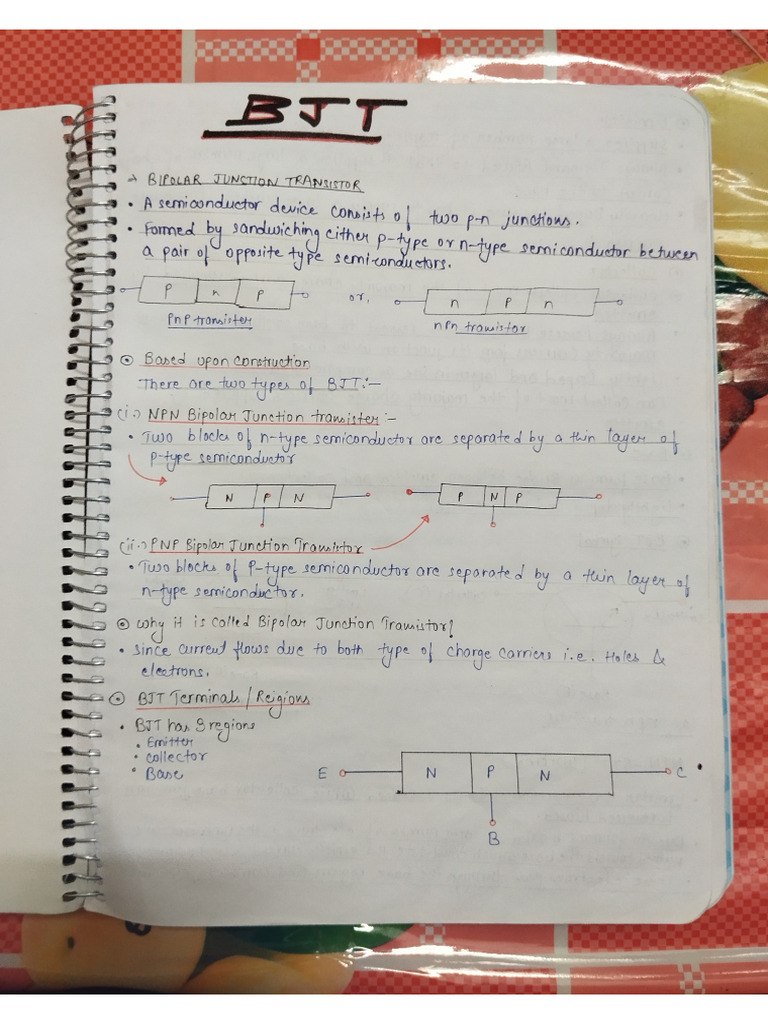 BJT
→ BIPOLAR JUNSTION TRANSISTOR
• A semiconductor device consists of two p-n junctions.
• Formed by sandwiching either p-type or n-type semiconductor between
a pair of opposite type semi-conductors.
P n P or, n P n
PnP transister nPn transistor
⊙ Based upon construction
There are two types of BJT:-
(i.) NPN Bipolar Junction transister:-
• Two blocks of n-type semiconductor are separated by a thin layer of
p-type semiconductor
N P N P N P
(ii.) PNP Bipolar Junction Transistor
• Two blocks of P-type semiconductor are separated by a thin layer of
n-type semiconductor.
⊙ why it is called Bipolar Junction Transistor?
• Since current flows due to both type of charge carriers i.e. Holes &
electrons.
⊙ BJT Terminals/Reigions
• BJT has 3 regions
• Emitter
• collector
• Base
E N P N C
B